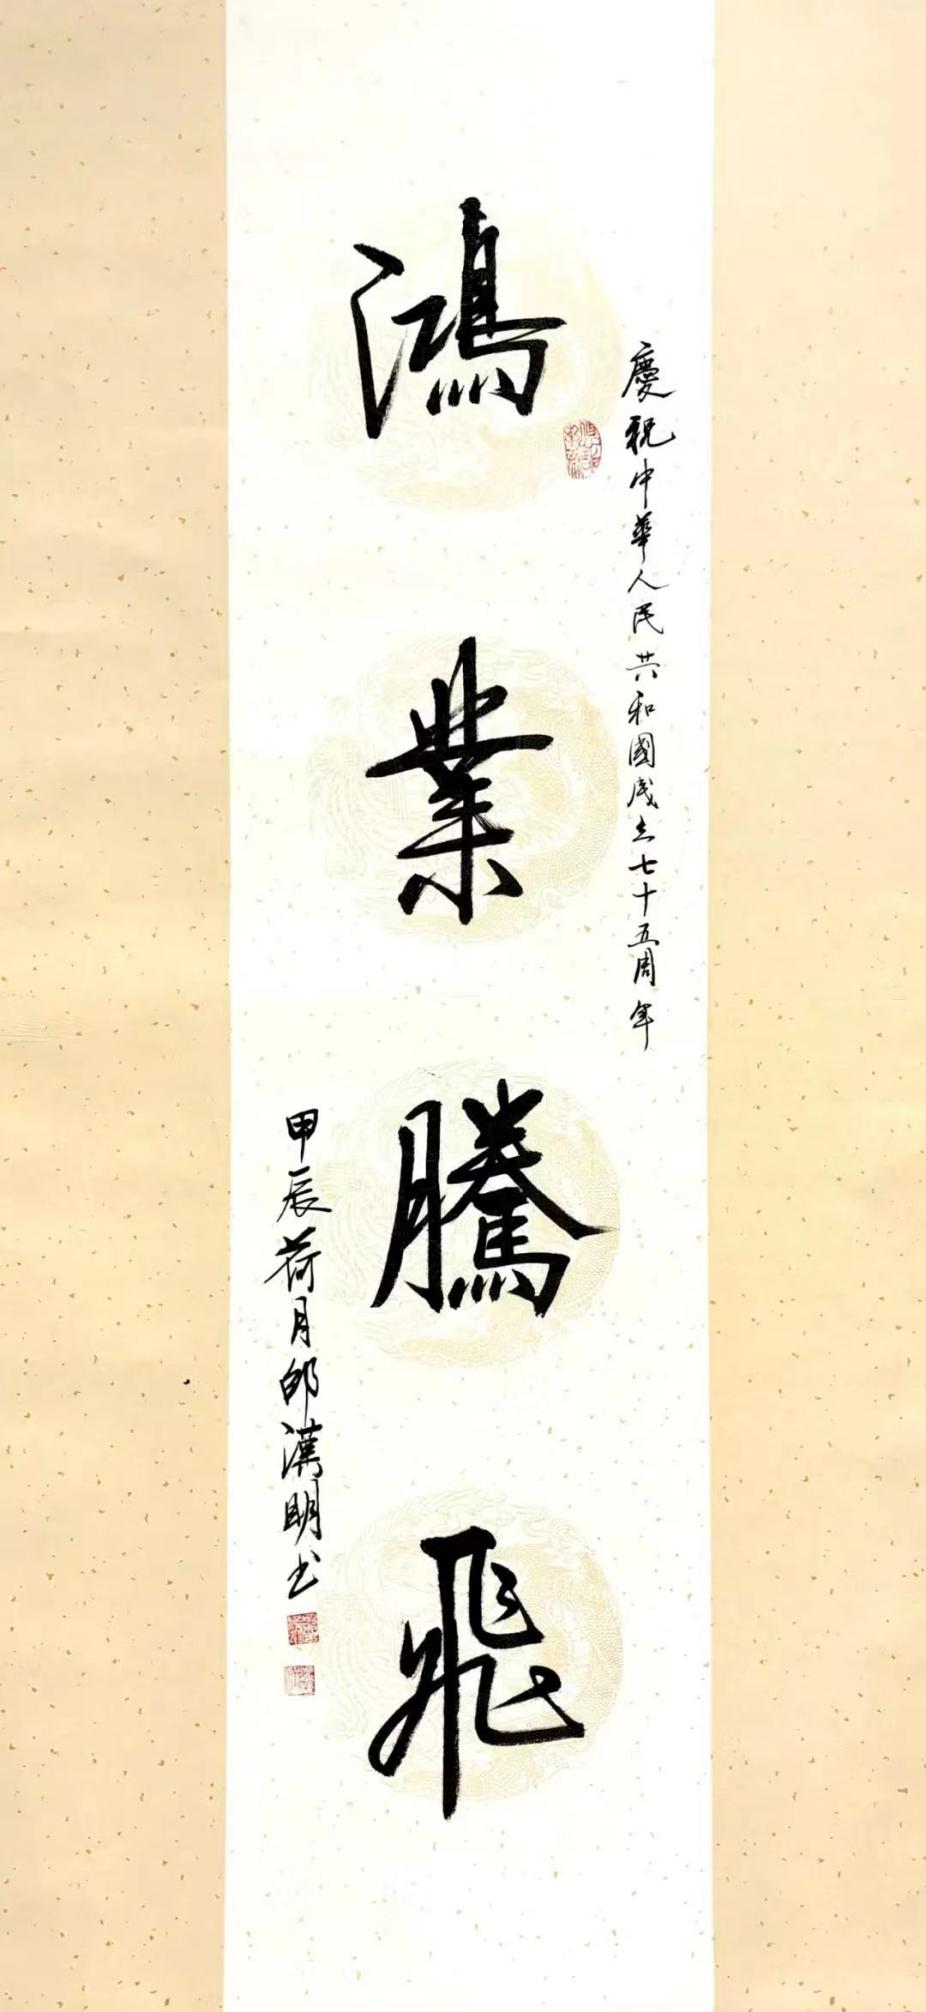 慶祝中華人民共和國成立七十五周年
鴻業騰飛
甲辰荷月邱漢明书